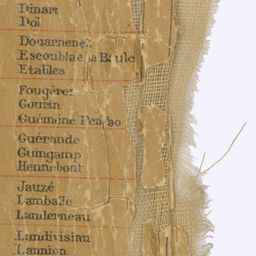 Dinart
Doi
Douarnenez
Escoublac la Baule
Etables
Fougères
Gourin
Guémené Penfao
Guérande
Guingamp
Hennebont
Jauzé
Lamballe
Landerneau
Landivisiau
Lannion